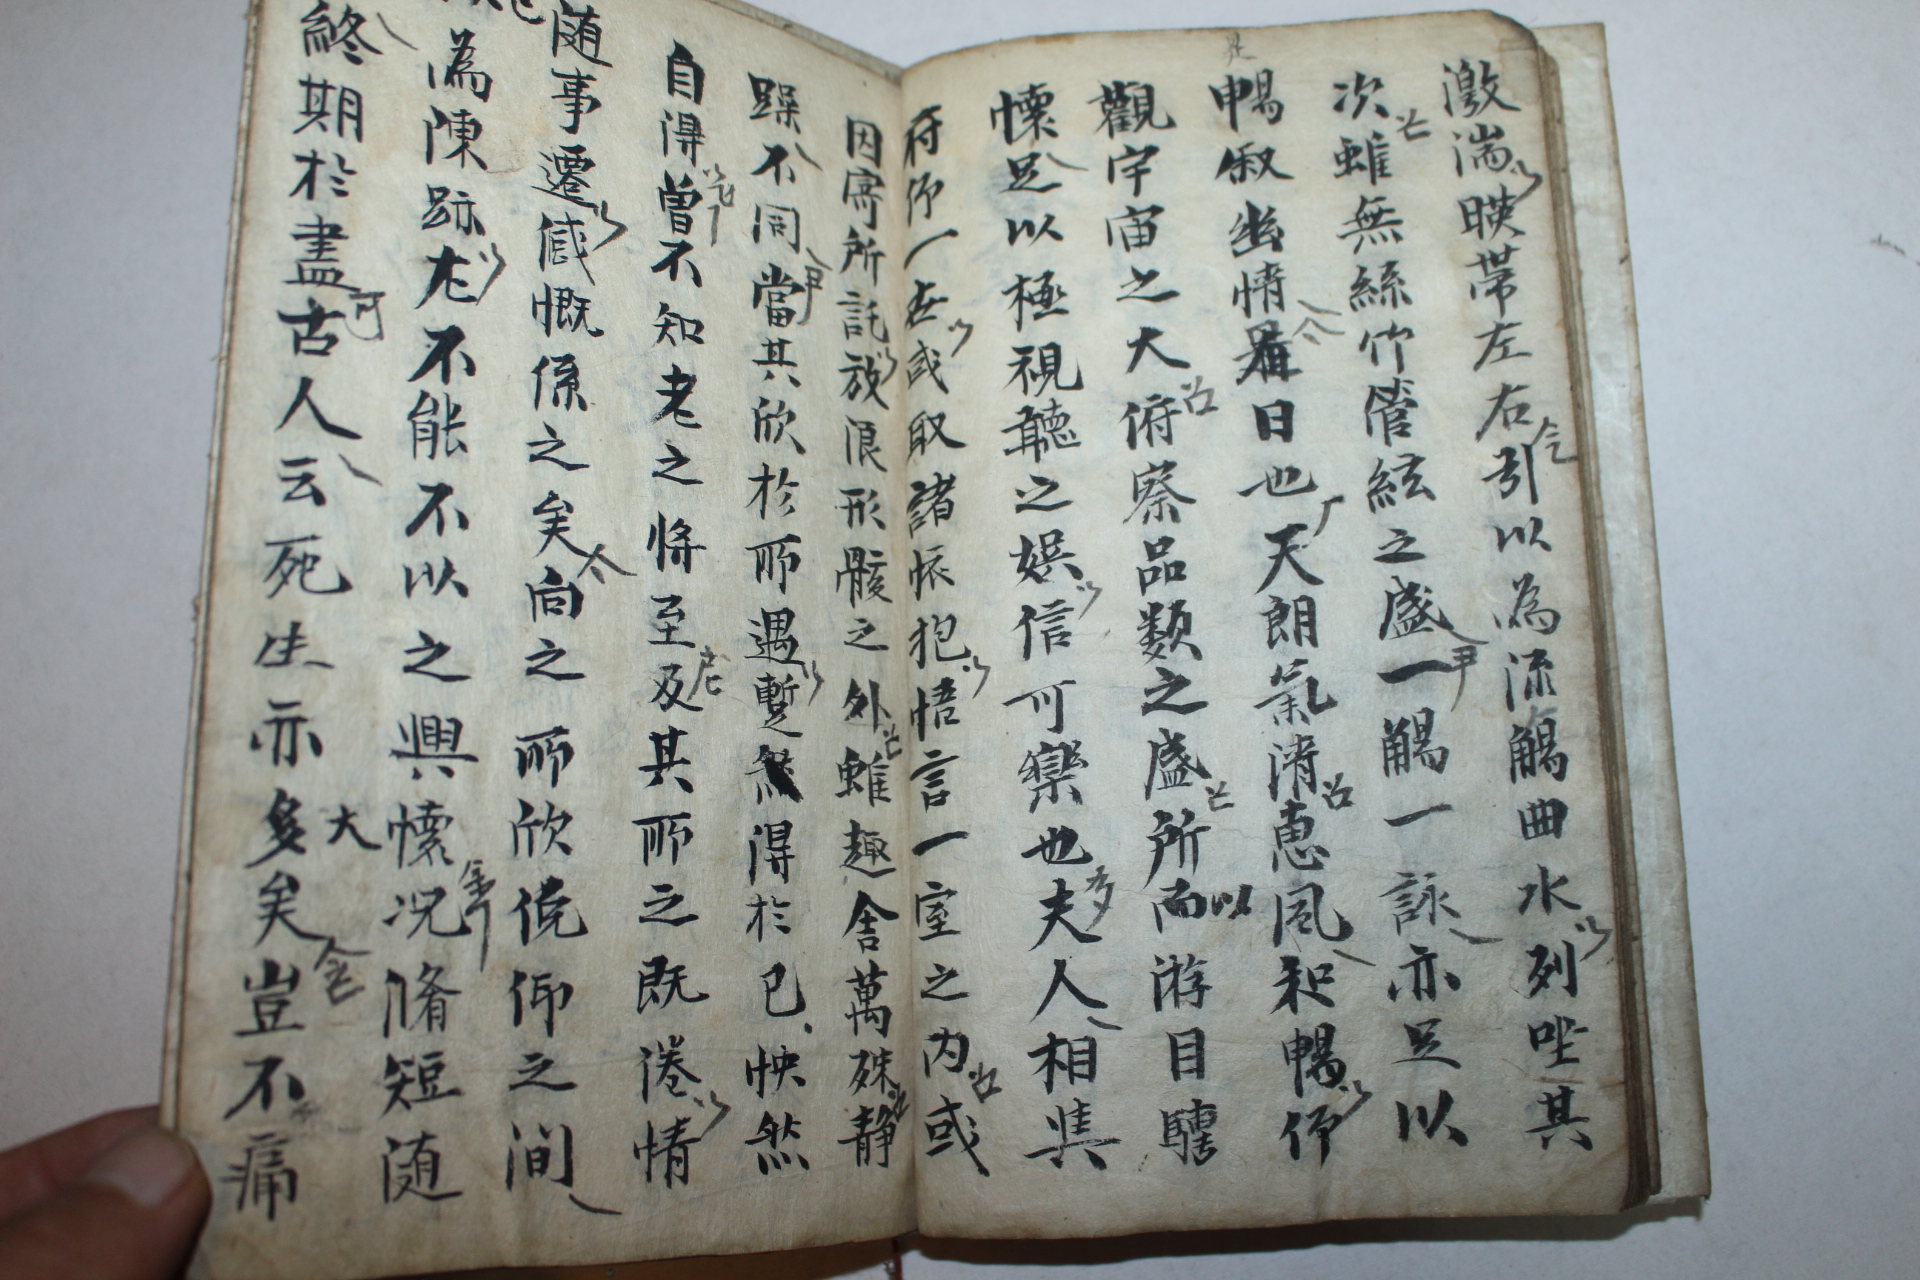 激湍暎帶左右引以為流觴曲水列坐其
次雖無絲竹管絃之盛一觴一詠亦足以
暢叙幽情是日也天朗氣清惠風和暢仰
觀宇宙之大俯察品類之盛所以游目騁
懷足以極視聽之娛信可樂也夫人相與
俯仰一世或取諸懷抱悟言一室之內或
因寄所託放浪形骸之外雖趣舍萬殊靜
躁不同當其欣於所遇暫然得於己怏然
自得曾不知老之將至及其所之既倦情
隨事遷感慨係之矣向之所欣俛仰之間
為陳跡尤不能不以之興懷況脩短隨
終期於盡古人云死生亦大矣豈不痛